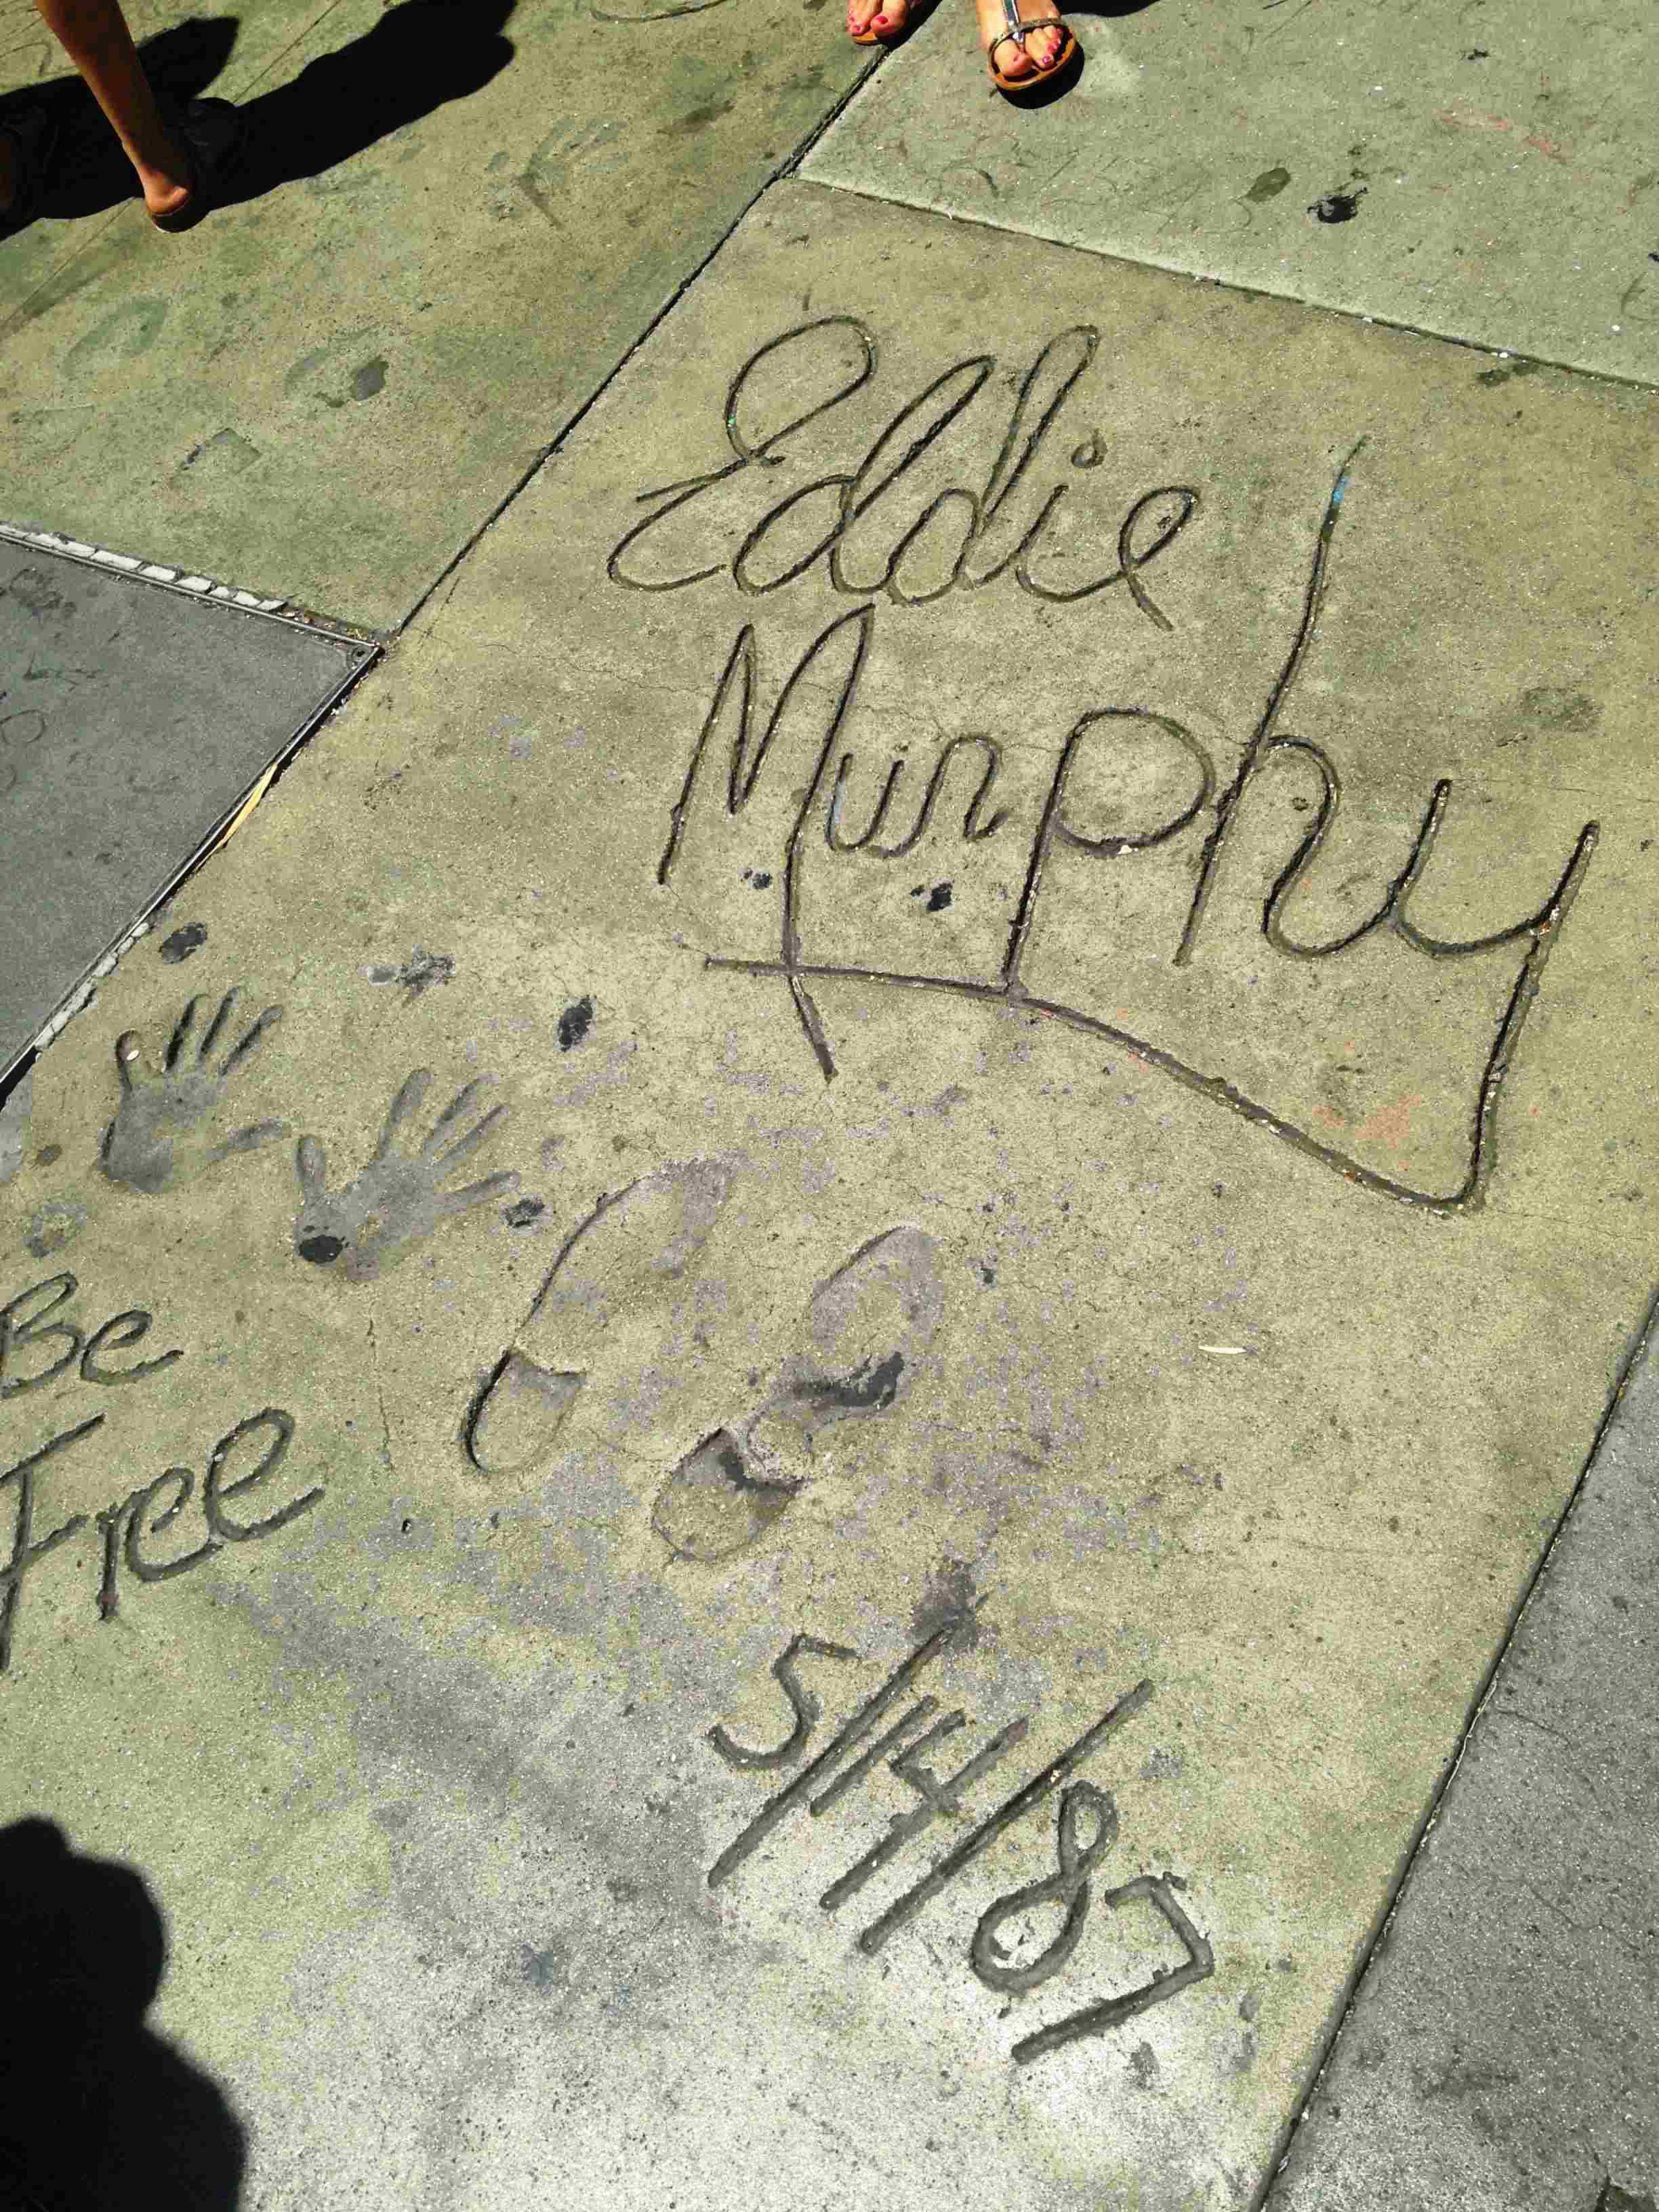 Eddie
Murphy
Be
Free
5/14/87